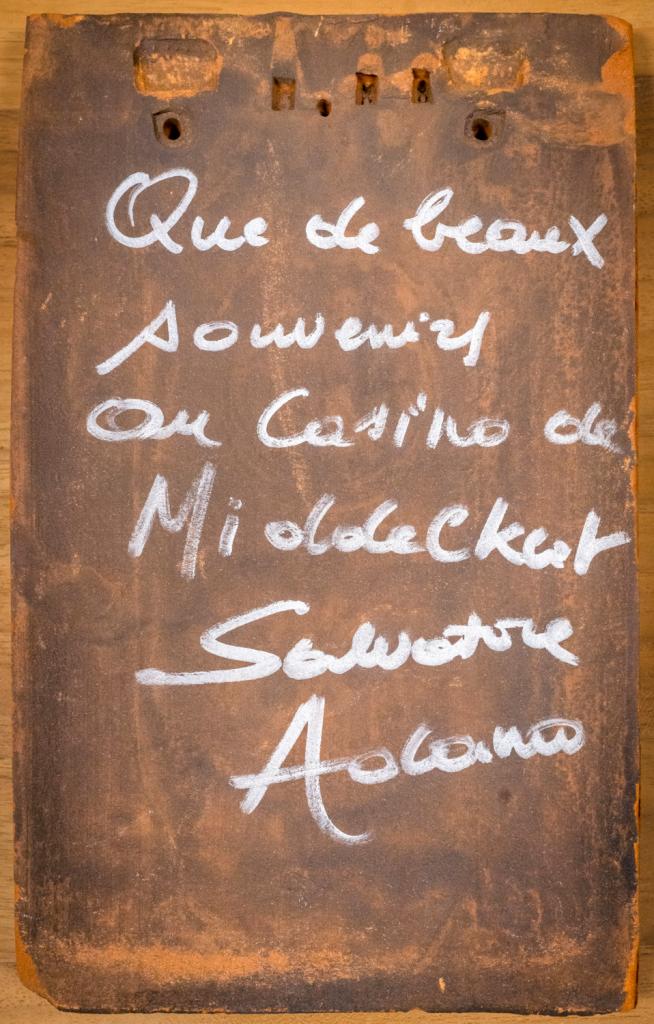 Que de beaux
souvenirs
au Casino de
Middelkerke
Salvatore
Adamo